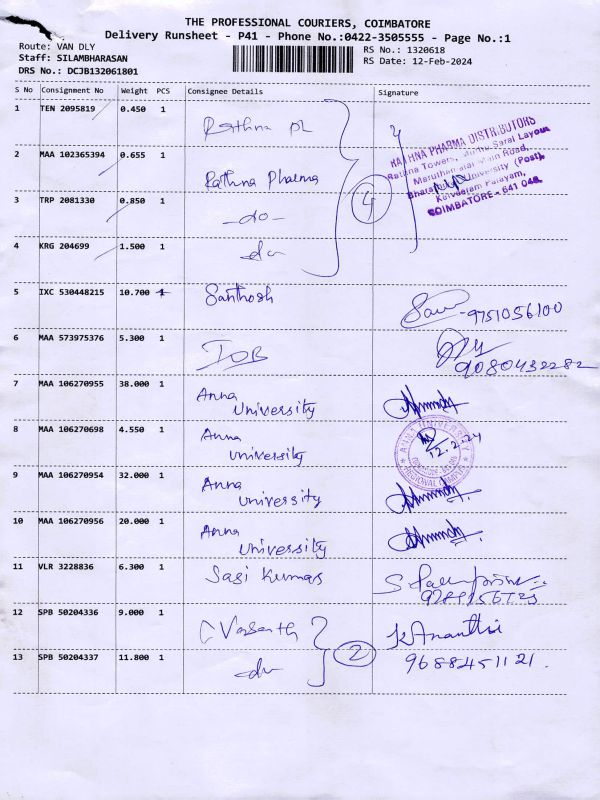 THE PROFESSIONAL COURIERS, COIMBATORE
Delivery Runsheet - P41 - Phone No.:0422-3505555 - Page No.:1
Route: VAN DLY
RS No.: 1320618
Staff: SILAMBHARASAN
RS Date: 12-Feb-2024
DRS No.: DCJB132061801
S No Consignment No Weight PCS Consignee Details Signature
1 TEN 2095819 0.450 1 Rathna
RATHNA PHARMA DISTRIBUTORS
Ratna Towers, Sarai Layout
Maruthamalai Main Road,
Bharathiar University (Post),
COIMBATORE - 641 046.
2 MAA 102365394 0.655 1 Rathna Pharma
4
3 TRP 2081330 0.850 1 -do-
4 KRG 204699 1.500 1 do
5 IXC 530448215 10.700 1 Santhosh
9751056100
6 MAA 573975376 5.300 1 IOB
9080432282
7 MAA 106270955 38.000 1 Anna
University
8 MAA 106270698 4.550 1 Anna
University
ANNA UNIVERSITY
12.2.24
REGIONAL CAMPUS
9 MAA 106270954 32.000 1 Anna
University
10 MAA 106270956 20.000 1 Anna
University
11 VLR 3228836 6.300 1 Sasi Kumar
12 SPB 50204336 9.000 1 Vasanth
K Ananthi
2
13 SPB 50204337 11.800 1 do
9688451121.